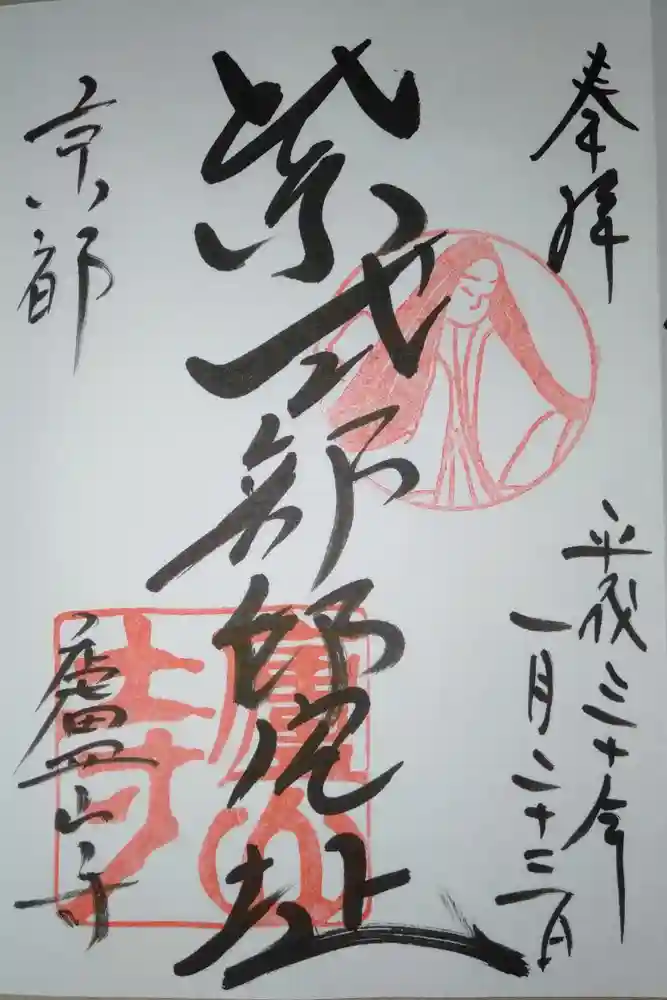 奉拝
平成三十年
一月二十三日
紫式部邸宅址
京都
廬山寺
廬山寺